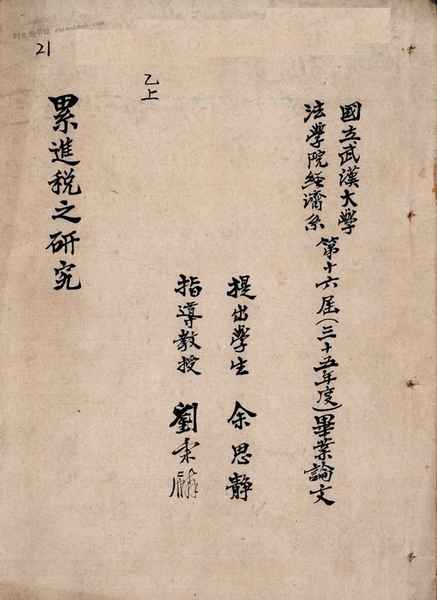 國立武漢大學
法學院經濟系
第十六屆(三十五年度)畢業論文
提出學生 余思靜
指導教授 劉秉麟
乙上
累進稅之研究
21